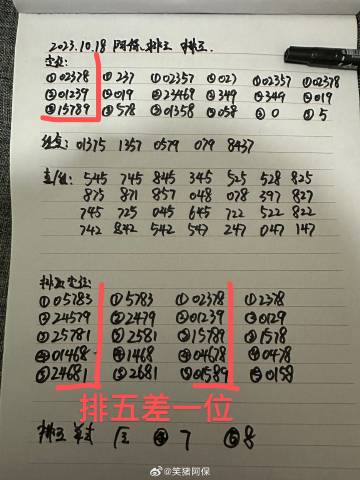 2023.10.18 阿保.排三 排五.
定位:
①02378 ①237 ①02357 ①027 ①02357 ①02378
②01239 ②019 ②23469 ②349 ②349 ②019
③15789 ③578 ③01358 ③058 ③0 ③5
组复: 01375 1357 0579 079 8437
直/组: 545 745 845 345 525 528 825
875 871 857 048 078 397 827
745 725 045 645 722 522 822
742 842 542 547 247 047 147
排五定位:
①05783 ①5783 ①02378 ①2378
②24579 ②2479 ②01239 ②0129
③25781 ③2581 ③15789 ③1578
④01468 ④1468 ④04678 ④0478
⑤24681 ⑤2681 ⑤01589 ⑤0158
排五差一位
排五 ④7 ⑤8
@笑猪阿保